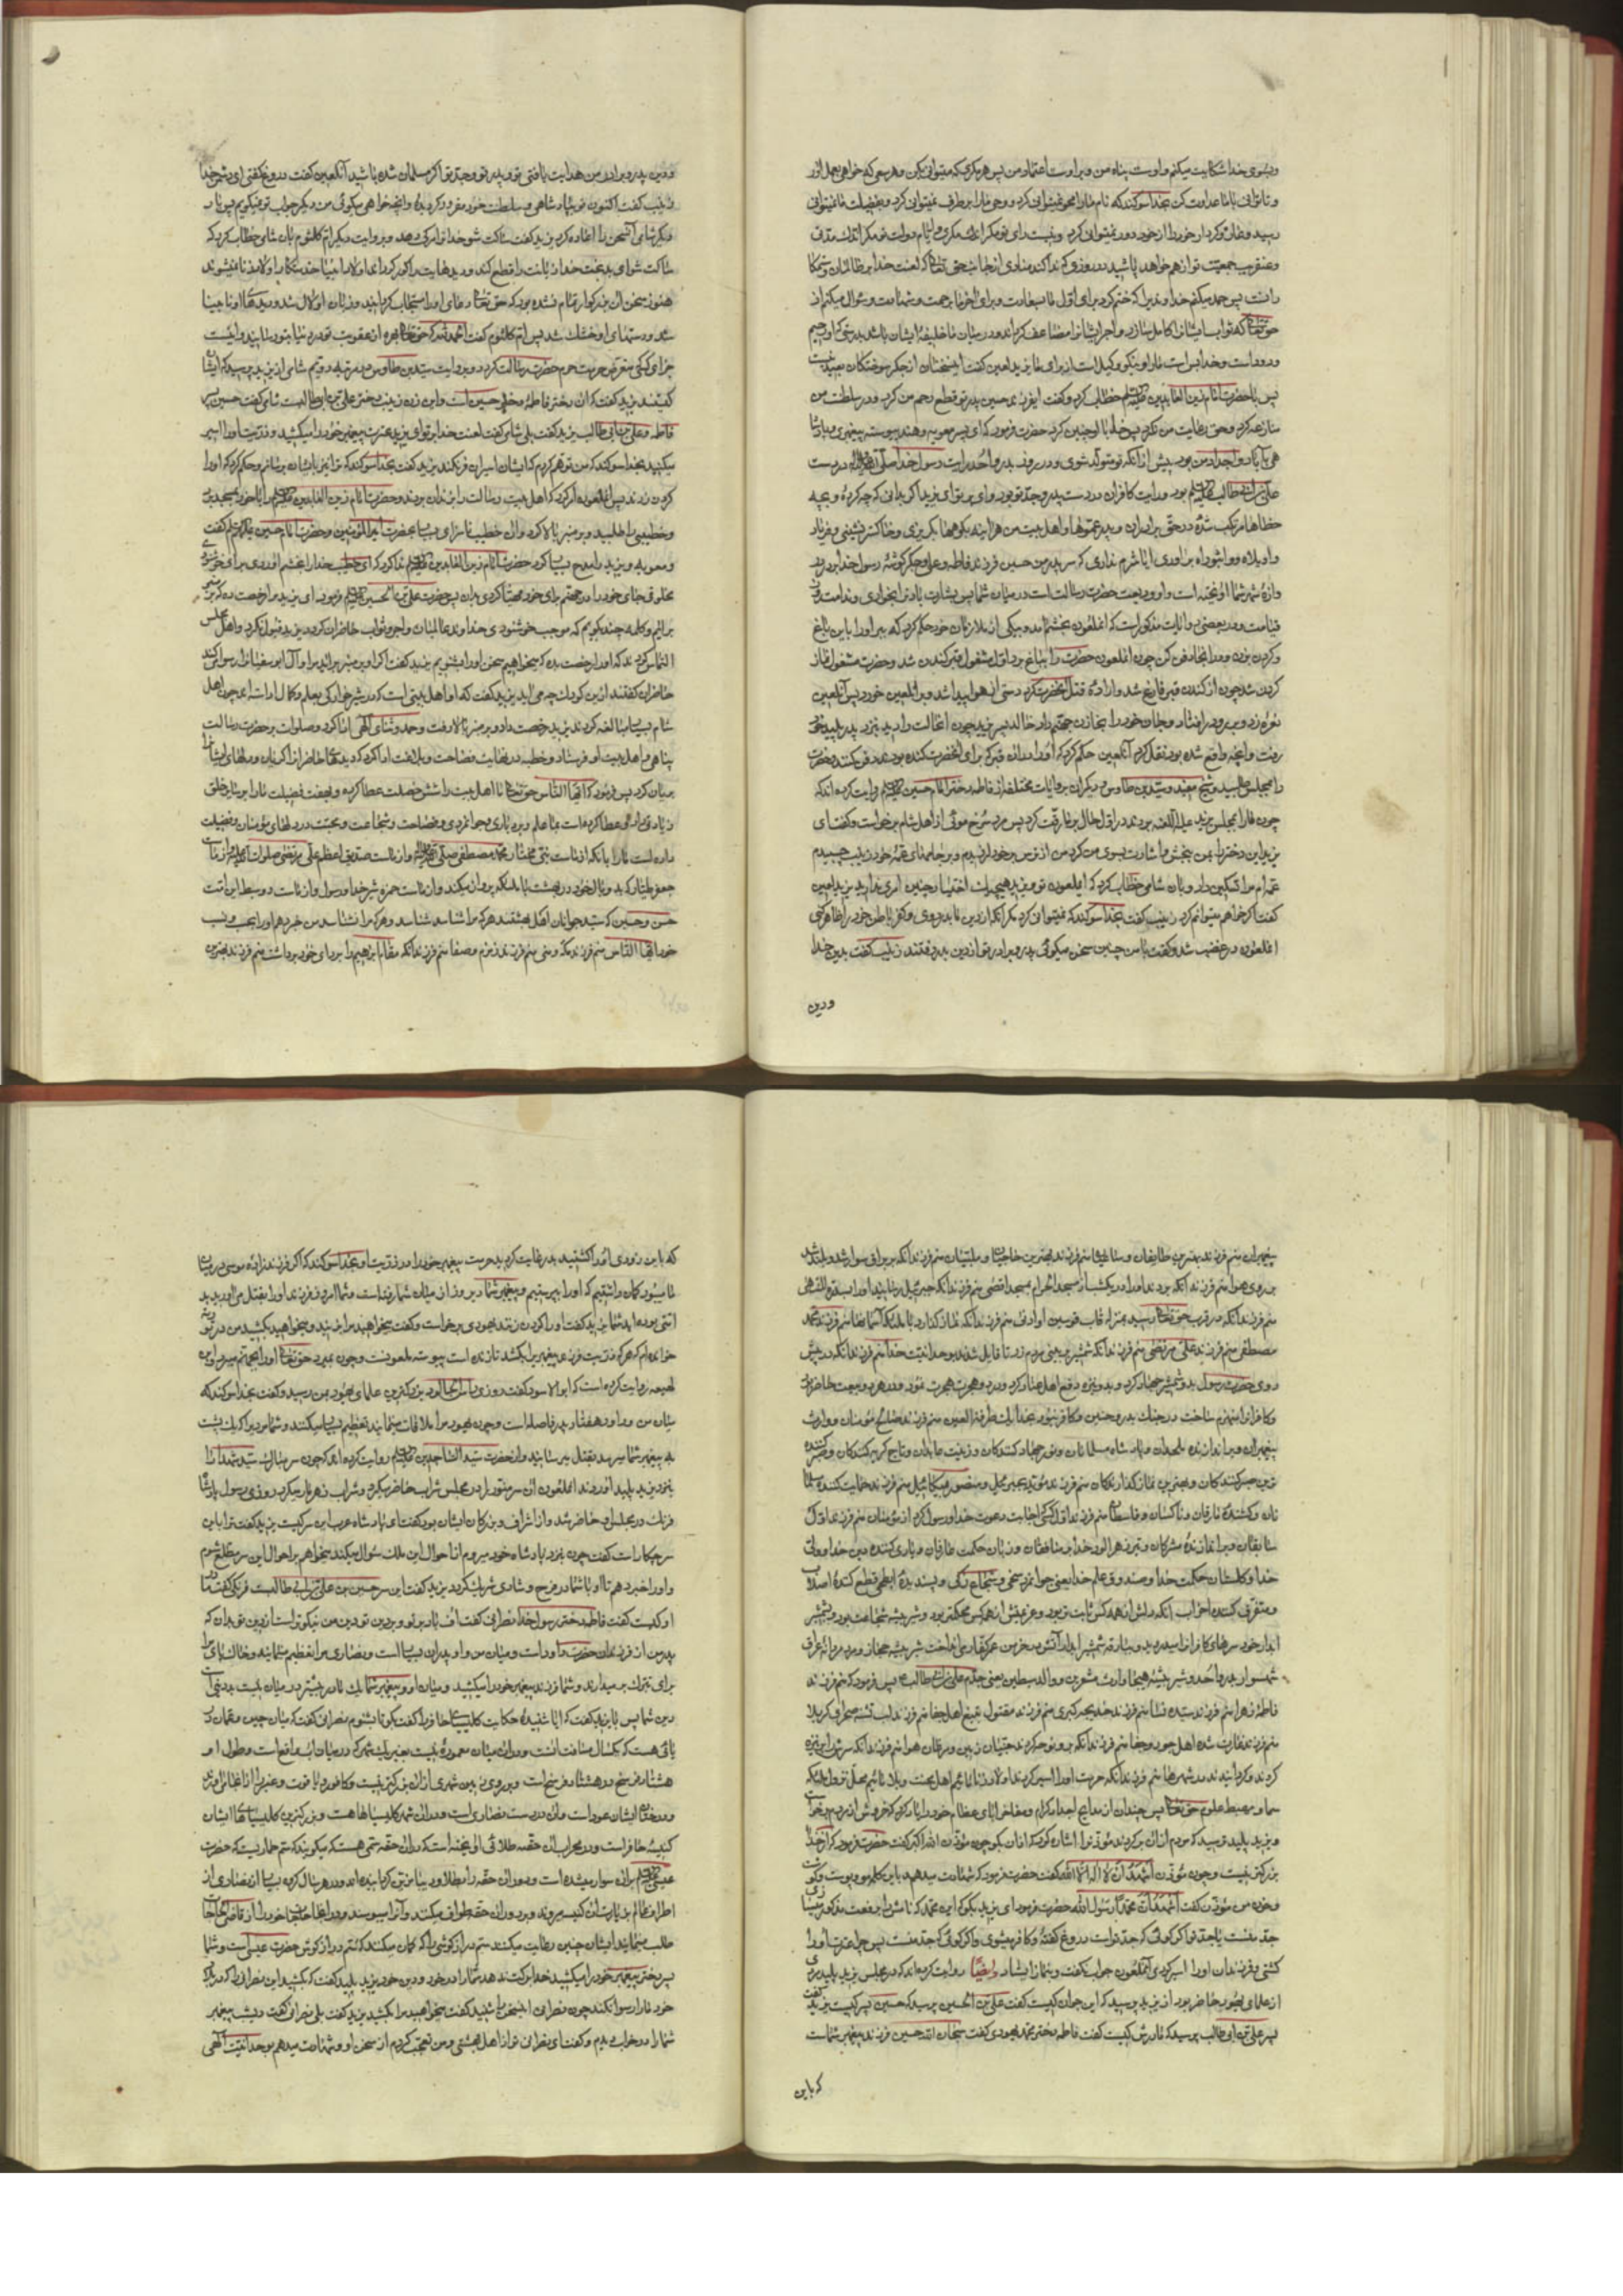 وبسوی خدا شکایت میکنم واوست پناه من وبر اوست اعتماد من پس هر مکری که میتوانی بکن وهر سعی که خواهی بعمل آور
وتا توانی با ما عداوت کن بخدا سوکند که نام ما را محو نمیتوانی کرد ووحی ما را برطرف نمیتوانی کرد وبفضیلت ما نمیتوانی
رسید وعار کردار خود را از خود دور نمیتوانی کرد ونیست رای تو مکر اندک مکری وایام دولت تو مکر اندک مدتی
وعنقریب جمعیت تو از هم خواهد پاشید در روزی که ندا کند منادی از جانب حق تعالی که لعنت خدا بر ظالمان وستمکا
رانست پس حمد میکنم خداوندیرا که ختم کرد برای اول ما بسعادت وبرای آخر ما برحمت وشهادت وسؤال میکنم از
حق تعالی که ثواب ایشانرا کامل سازد واجر ایشانرا مضاعف کرداند ودر میان ما خلیفه ایشان باشد بدرستی که او رحیم
ودود است وخدا بس است ما را و نیکو وکیل است از برای ما یزید لعین کفت این سخنان از جکر سوختکان بعید نیست
پس با حضرت امام زین العابدین علیه السلم خطاب کرد وکفت ای فرزند حسین پدر تو قطع رحم من کرد ودر سلطنت من
منازعه کرد وحق رعایت من نکرد پس خدا با او چنین کرد حضرت فرمود که ای پسر معویه وهند پیوسته پیغمبری وپادشا
هی با آبا واجداد من بود پیش از آنکه تو متولد شوی ودر روز بدر واحد رایت رسول خدا صلی الله علیه وآله در دست
علی بن ابی طالب علیه السلم بود ورایت کافران در دست پدر وجد تو بود وای بر تو ای یزید اکر بدانی که چه کردهٔ وبچه
خطاها مرتکب شدهٔ در حق پدر وبرادران وعموها واهل بیت من هرآینه بکوهها بکریزی وخاکستر نشینی وفریاد
واویلاه وواثبوراه برآوری ایا شرم نداری که سر پدر من حسین فرزند فاطمه وعلی وجکر کوشهٔ رسول خدا بر در
وازهٔ شهر شما آویخته است واو ودیعت حضرت رسالت است در میان شما پس بشارت باد ترا بخواری وندامت روز
قیامت ودر بعضی روایات مذکور است که آنملعون بخشم آمد وبیکی از ملازمان خود حکم کرد که ببر او را باین باغ
وکردن بزن ودر آنجا دفن کن چون آنملعون حضرت را بباغ برد اول مشغول قبر کندن شد وحضرت مشغول نماز
کردن شد چون از کندن قبر فارغ شد وارادهٔ قتل آنحضرت کرد دستی از هوا پیدا شد وبر آنلعین خورد پس آنلعین
نعره زد وبر رو در افتاد وجان خود را بخازن جهنم داد خالد پسر یزید چون آن حالت را دید بنزد پدر پلید خود
رفت وآنچه واقع شده بود نقل کرد آنلعین حکم کرد که او را در آن قبر که برای آنحضرت کنده بودند دفن کنند وحضرت
را بمجلس طلبید وشیخ مفید وسید بن طاوس ودیکران بروایات مختلفه از فاطمه دختر امام حسین علیه السلم روایت کرده اند که
چون ما را بمجلس یزید علیه اللعنه بردند در اول حال بر ما رقت کرد پس مرد سرخ موئی از اهل شام برخواست وکفت ای
یزید این دختر را بمن ببخش واشارت بسوی من کرد من از ترس بر خود لرزیدم وبر جامهای عمهٔ خود زینب چسبیدم
عمه ام مرا تسکین داد وبان شامی خطاب کرد که ای ملعون تو ویزید هیچیک اختیار چنین امری ندارید یزید لعین
کفت اکر خواهم میتوانم کرد زینب کفت بخدا سوکند که نمیتوانی کرد مکر آنکه از دین ما بدر روی وکفر باطن خود را ظاهر کنی
آنملعون در غضب شد وکفت با من چنین سخن میکوئی پدر وبرادر تو از دین بدر رفتند زینب کفت بدین خدا
ودین
ودین پدر وبرادر من هدایت یافتی تو وپدر تو وجد تو اکر مسلمان شده باشید آنلعین کفت دروغ کفتی ای دشمن خدا
زینب کفت اکنون تو پادشاهی وبسلطنت خود مغرور کردیدهٔ وآنچه خواهی میکوئی من دیکر جواب تو نمیکویم پس بار
دیکر شامی آن سخن را اعاده کرد یزید کفت ساکت شو خدا ترا مرک دهد وبروایت دیکر ام کلثوم بان شامی خطاب کرد که
ساکت شو ای بدبخت خدا زبانت را قطع کند ودیدهایت را کور کرداند واولاد انبیا خدمتکار اولاد زنا نمیشوند
هنوز سخن آن بزرکوار تمام نشده بود که حق تعالی دعای او را مستجاب کردانید وزبان او لال شد ودیدهها او نابینا
شد ودستهای او خشک شد پس ام کلثوم کفت الحمد لله که حق تعالی بهرهٔ از عقوبت تو در دنیا بتو رسانید واینست
جزای کسی که متعرض حریت حرم حضرت رسالت کردد وبروایت سید بن طاوس در مرتبه دویم شامی از یزید پرسید که ایشان
کیستند یزید کفت که آن دختر فاطمه دختر حسین است واین زن زینب دختر علی بن ابی طالبست شامی کفت حسین پسر
فاطمه وعلی بن ابی طالب یزید کفت بلی شامی کفت لعنت خدا بر تو ای یزید عترت پیغمبر خود را میکشید وذریت او را اسیر
میکنید بخدا سوکند که من توهم کردم که ایشان اسیران فرنکند یزید کفت بخدا سوکند که ترا نیز بایشان برسانم وحکم کرد که او را
کردن زدند پس آنملعون امر کرد که اهل بیت رسالت را بزندان بردند وحضرت امام زین العابدین علیه السلم را با خود بمسجد برد
وخطیبی را طلبید وبر منبر بالا کرد وآن خطیب ناسزای بسیار بحضرت امیرالمؤمنین وحضرت امام حسین علیهما السلم کفت
ومعویه ویزید را مدح بسیار کرد حضرت امام زین العابدین علیه السلم ندا کرد که ای خطیب خدا را بخشم آوردی برای خوشنودی
مخلوقی جای خود را در جهنم برای خود مهیا کردی بدان پس حضرت علی بن الحسین علیه السلم فرمود ای یزید مرا رخصت ده که بر منبر
برآیم وکلمهٔ چند بکویم که موجب خوشنودی خداوند عالمیان واجر وثواب حاضران کردد یزید قبول نکرد واهل مجلس
التماس کردند که او را رخصت بده که میخواهیم سخن او را بشنویم یزید کفت اکر او بر منبر برآید مرا وآل ابوسفیانرا رسوا میکند
حاضران کفتند ازین کودک چه می آید یزید کفت که او از اهل بیتی است که در شیرخوارکی بعلم وکمال آراسته اند چون اهل
شام بسیار مبالغه کردند یزید رخصت داد وبر منبر بالا رفت وحمد وثنای الهی ادا کرد وصلوات بر حضرت رسالت
پناهی واهل بیت او فرستاد وخطبه در نهایت فصاحت وبلاغت ادا کرد که دیدهای حاضرانرا کریان ودلهای ایشانرا
بریان کرد پس فرمود که ایها الناس حق تعالی ما اهل بیت را شش خصلت عطا کرده وبهفت فضیلت ما را بر سایر خلق
زیادتی داده وعطا کرده است بما علم وبردباری وجوانمردی وفصاحت وشجاعت ومحبت در دلهای مؤمنان وفضیلت
داده است ما را بانکه از ماست نبی مختار محمد مصطفی صلی الله علیه وآله وازماست صدیق اعظم علی مرتضی صلوات الله علیه وازماست
جعفر طیار که با دو بال خود در بهشت با ملائکه پرواز میکند وازماست حمزه شیر خدا ورسول وازماست دو سبط این امت
حسن وحسین که سید جوانان اهل بهشتند هر که مرا شناسد شناسد وهر که مرا نشناسد من خبر دهم او را بحسب ونسب
خود ایها الناس منم فرزند مکه ومنی منم فرزند زمزم وصفا منم فرزند آنکه مقام ابراهیم را بردای خود برداشت منم فرزند بهترین
پیغمبران منم فرزند بهترین طایفان وساعیان منم فرزند بهترین حاجیان وملبیان منم فرزند آنکه بر براق سوار شد وبلند شد
بر روی هوا منم فرزند آنکه بردند او را در یکشب از مسجد الحرام بمسجد اقصی منم فرزند آنکه جبرئیل رسانید او را بسدرة المنتهی
منم فرزند آنکه در قرب حق تعالی رسید بمنزله قاب قوسین او ادنی منم فرزند آنکه نماز کذارد با ملائکه آسمانها منم فرزند محمد
مصطفی منم فرزند علی مرتضی منم فرزند آنکه شمشیر بر بینی مردم زد تا قایل شدند بوحدانیت خدا منم فرزند آنکه در پیش
روی حضرت رسول بدو شمشیر جهاد کرد وبدو نیزه دفع اهل عناد کرد ودر دو هجرت هجرت نمود ودر هر دو بیعت حاضر بود
وکافرانرا منهزم ساخت در جنک بدر وحنین وکافر نبود بخدا یک طرفة العین منم فرزند صالح مؤمنان ووارث
پیغمبران وبراندازنده ملحدان وپادشاه مسلمانان ونور جهاد کنندکان وزینت عابدان وتاج کریه کنندکان وصبر کننده
ترین صبر کنندکان وبهترین نماز کذارندکان منم فرزند مؤید بجبرئیل ومنصور بمیکائیل منم فرزند حمایت کننده مسلما
نان وکشندهٔ مارقان وناکثان وقاسطان منم فرزند اول کسی که اجابت دعوت خدا ورسول کرد از مؤمنان منم فرزند اول
سابقان وبراندازندهٔ مشرکان وتیر زهرآلود خدا بر منافقان وزبان حکمت عارفان ویاری کننده دین خدا وولی
خدا وکلستان حکمت خدا وصندوق علم خدا یعنی جوانمرد سخی وشجاع زکی وپسندیدهٔ ابطحی قطع کنندهٔ اصلاب
ومتفرق کننده احزاب آنکه دلش از همه کس ثابت تر بود وعزمش از همه کس محکمتر بود وشیر بیشه شجاعت بود وبشمشیر
آبدار خود سرهای کافرانرا میدروید وببارقهٔ شمشیر آتش در خرمن عمر کفار می انداخت شیر بیشه حجاز ومرد مردانه عراق
شهسوار بدر واحد وشیر بیشهٔ هیجا وارث مشعرین ووالد سبطین یعنی جدم علی بن ابی طالب ع پس فرمود که منم فرزند
فاطمهٔ زهرا منم فرزند سیده نسا منم فرزند خدیجه کبری منم فرزند مقتول بتیغ اهل جفا منم فرزند لب تشنه صحرای کربلا
منم فرزند غارت شده اهل جور وجفا منم فرزند آنکه بر او نوحه کردند جنیان زمین ومرغان هوا منم فرزند آنکه سرش را بر نیزه
کردند وکردانیدند در شهرها منم فرزند آنکه حرمت او را اسیر کردند اولاد زنا مائیم اهل محنت وبلا مائیم محل نزول ملائکه
سما ومهبط علوم حق تعالی پس چندان از مدایح اجداد کرام ومفاخر آبای عظام خود را یاد کرد که خروش از مردم برخواست
ویزید پلید ترسید که مردم ازو برکردند مؤذن را اشاره کرد که اذان بکو چون مؤذن الله اکبر کفت حضرت فرمود که از خدا
بزرکتری نیست وچون مؤذن اشهد ان لا اله الا الله کفت حضرت فرمود که شهادت میدهد باین کلمه مو وپوست وکوشت
وخون من مؤذن کفت اشهد ان محمدا رسول الله حضرت فرمود ای یزید بکو که این محمد که نامش را برفعت مذکور میسازی
جد منست یا جد تو اکر کوئی که جد تو است دروغ کفتهٔ وکافر میشوی واکر کوئی که جد منست پس چرا عترت او را
کشتی وفرزندان او را اسیر کردی آنملعون جواب نکفت وبنماز ایستاد وایضا روایت کرده اند که در مجلس یزید پلید مردی
از علمای یهود حاضر بود از یزید پرسید که این جوان کیست کفت علی بن الحسین پرسید که حسین پسر کیست یزید کفت
پسر علی بن ابی طالب پرسید که مادرش کیست کفت فاطمه دختر محمد یهودی کفت سبحان الله حسین فرزند پیغمبر شماست
که باین
که باین زودی او را کشتید بد رعایت کردید حرمت پیغمبر خود را در ذریت او بخدا سوکند که اکر فرزند زادهٔ موسی در میان
ما میبود کمان داشتیم که او را بپرستیم وپیغمبر شما دیروز از میان شما رفته است وشما امروز فرزند او را بقتل می آورید بد
امتی بوده اید شما یزید کفت او را کردن زنند یهودی برخواست وکفت میخواهید مرا بزنید ومیخواهید بکشید من در توریة
خوانده ام که هر که ذریت فرزند پیغمبر را بکشد تا زنده است پیوسته ملعونست وچون بمیرد حق تعالی او را بجهنم میبرد وابن
لهیعه روایت کرده است که ابو الاسود کفت روزی راس الجالوت بزرکترین علمای یهود بمن رسید وکفت بخدا سوکند که
میان من وداود هفتاد پدر فاصله است وچون یهود مرا ملاقات مینمایند تعظیم بسیار میکنند وشما میان او که یک پشت
به پیغمبر شما میرسد بقتل میرسانید واز حضرت سید الساجدین علیه السلم روایت کرده اند که چون سر مبارک سید شهدا را
بنزد یزید پلید آوردند آنملعون آن سر منور را در مجلس شراب حاضر میکرد وشراب زهرمار میکرد روزی رسول پادشاه
فرنک در مجلس او حاضر شد واز اشراف وبزرکان ایشان بود کفت ای پادشاه عرب این سر کیست یزید کفت ترا باین
سر چکار است کفت چون بنزد پادشاه خود میروم از احوال این ملک سؤال میکند میخواهم بر احوال این سر مطلع شوم
واو را خبر دهم تا او با شما در فرح وشادی شریک کردد یزید کفت این سر حسین بن علی بن ابی طالبست فرنکی کفت مادر
او کیست کفت فاطمه دختر رسول خدا نصرانی کفت اف باد بر تو وبر دین تو دین من نیکوتر است از دین تو بدان که
پدر من از فرزندان حضرت داود است ومیان من واو پدران بسیار است ونصاری مرا تعظیم مینمایند وخاک پای مرا
برای تبرک بر میدارند وشما فرزند پیغمبر خود را میکشید ومیان او وپیغمبر شما یک مادر بیشتر در میان نیست بد دینی است
دین شما پس با یزید کفت که ایا شنیدهٔ حکایت کلیسیای حافر را کفت بکو تا بشنوم نصرانی کفت که میان چین وعمان در
یائی هست که یکسال مسافت آنست ودر آن میان معمورهٔ نیست بغیر یک شهر که در میان آب واقع است وطول او
هشتاد فرسخ در هشتاد فرسخ است وبر روی زمین شهری از آن بزرکتر نیست وکافور ویاقوت وعنبر را از انجا می آورند
ودرختان ایشان عود است وآن در دست نصاری است ودر آن شهر کلیسیاها هست وبزرکترین کلیسیاهها ایشان
کنیسه حافر است ودر محراب آن حقه طلائی آویخته است که در آن حقه سمی هست که میکویند که سم حماریست که حضرت
عیسی علیه السلم بر آن سوار میشده است ودور آن حقه را بطلا ودیبا مزین کردانیده اند ودر هر سال کروه بسیار از نصاری از
اطراف عالم بزیارت آن کنیسه میروند وبر دور آن حقه طواف میکنند وآنرا میبوسند ودر آنجا حاجتهای خود را از قاضی الحاجات
طلب مینمایند ایشان چنین رعایت میکنند سم دراز کوشی را که کمان میکنند که سم دراز کوش حضرت عیسی است وشما
پسر دختر پیغمبر خود را میکشید خدا برکت ندهد شما را در خود ودین خود یزید پلید کفت که بکشید این نصرانی را که در بلاد
خود ما را رسوا نکند چون نصرانی این سخن را شنید کفت میخواهید مرا بکشید یزید کفت بلی نصرانی کفت دیشب پیغمبر
شما را در خواب دیدم وکفت ای نصرانی تو از اهل بهشتی ومن تعجب کردم از سخن او وشهادت میدهم بوحدانیت الهی